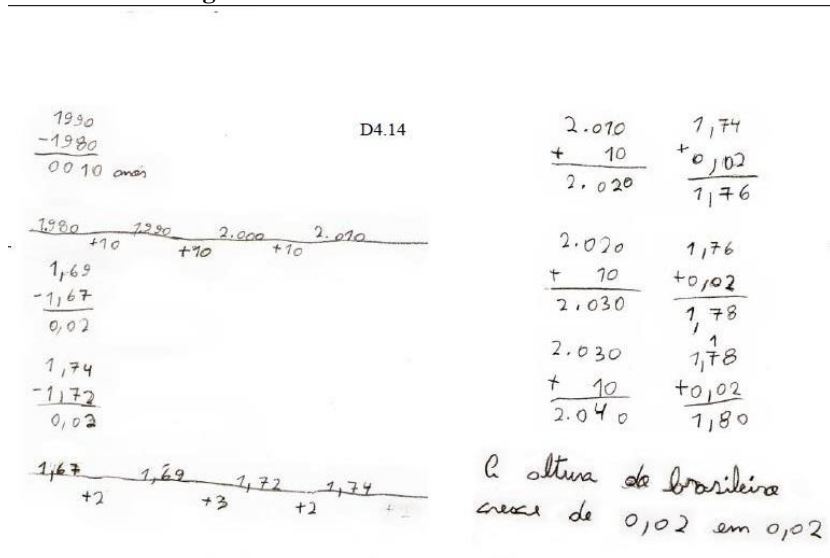 1990
-1980
0010 anos
D4.14
1.980 1990 2.000 2.010
+10 +10 +10
1,69
-1,67
0,02
1,74
-1,72
0,02
1,67 1,69 1,72 1,74
+2 +3 +2
2.010
+ 10
2.020
1,74
+0,02
1,76
2.020
+ 10
2.030
1,76
+0,02
1,78
2.030
+ 10
2.040
1
1,78
+0,02
1,80
A altura do brasileiro
cresce de 0,02 em 0,02